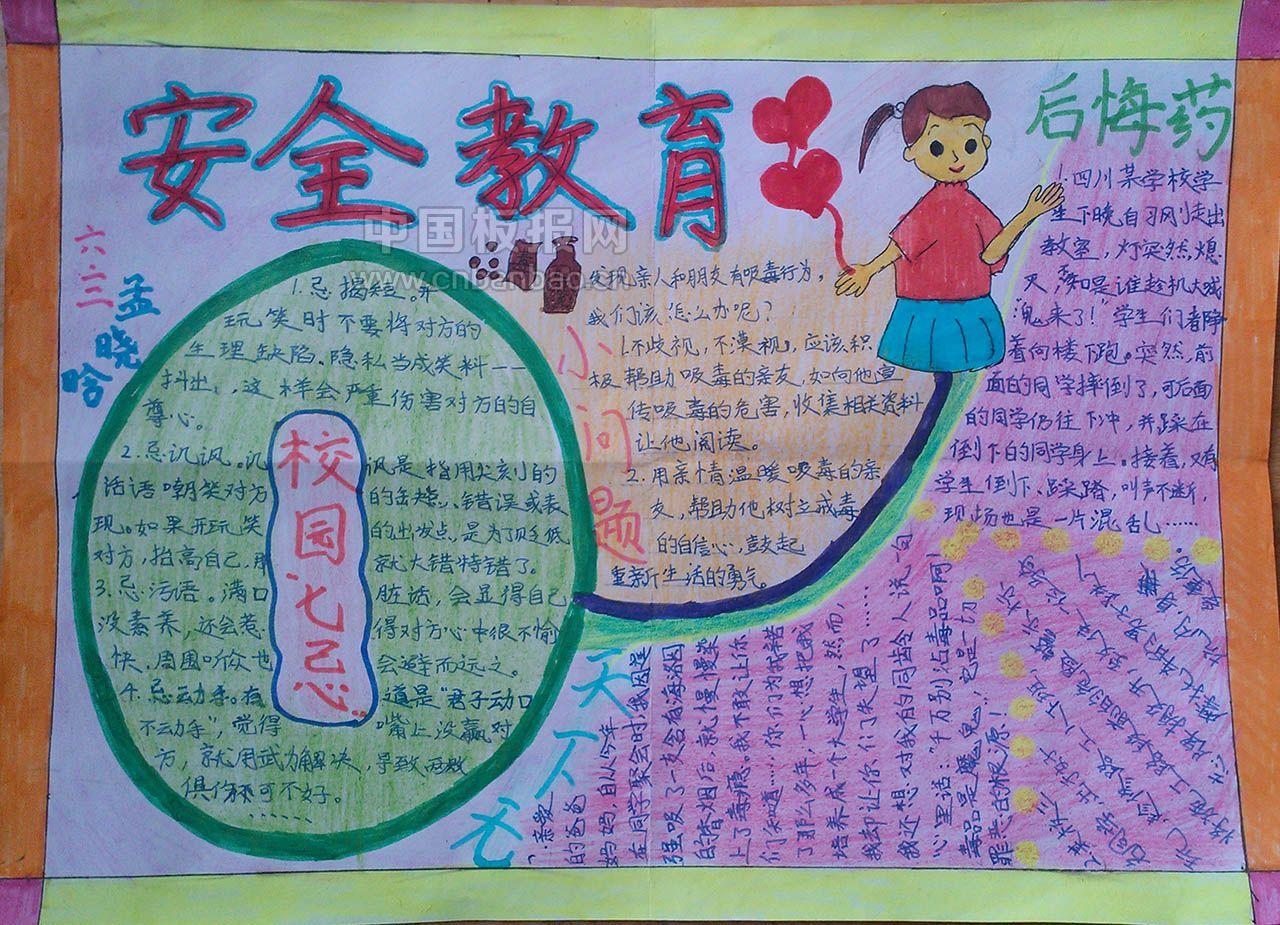 安全教育
中国板报网
www.cnbanbao.cn
六三
孟晓晗
校园七忌
1.忌揭短。开
玩笑时不要将对方的
生理缺陷、隐私当成笑料——
抖出,这样会严重伤害对方的自
尊心。
2.忌讥讽。讥讽是指用尖刻的
话语嘲笑对方的缺点、错误或表
现。如果开玩笑的出发点是为了贬低
对方,抬高自己,那就大错特错了。
3.忌污语。满口脏话,会显得自己
没素养,还会惹得对方心中很不愉
快,周围听众也会避而远之。
4.忌动手。有道是“君子动口
不动手”,觉得嘴上没赢对
方,就用武力解决,导致两败
俱伤可不好。
……
小问题
发现亲人和朋友有吸毒行为,
我们该怎么办呢?
1.不歧视,不漠视,应该积
极帮助吸毒的亲友,如向他宣
传吸毒的危害,收集相关资料
让他阅读。
2.用亲情温暖吸毒的亲
友,帮助他树立戒毒
的自信心,鼓起
重新生活的勇气。
后悔药
1.四川某学校学
生下晚自习刚走出
教室,灯突然熄
灭,不知是谁趁机大喊
“鬼来了!”学生们都
着向楼下跑。突然,前
面的同学摔倒了,可后面
的同学仍往下冲,并踩在
倒下的同学身上。接着,又有
学生倒下、踩踏,叫声不断,
现场也是一片混乱……
天下无
亲爱
的爸爸
妈妈,自从今年
在同学聚会时,我因逞
强吸了一支含有海洛因
的香烟后,就慢慢染
上了毒瘾。我不敢让你
们知道……你们为我辛苦
了那么多年,一心想把我
培养成一个大学生,然而,
我却让你们失望了……
我还想对我的同龄人说一句
心里话:“千万别沾毒品啊!
毒品是魔鬼,它是一切
罪恶的根源!